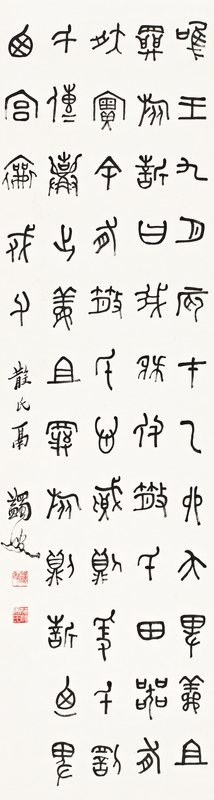 唯王九月辰才乙卯夨卑義且
旅誓曰我既付散氏田器有
爽實余有散氏心賊則爰千罰
千傳棄之義且旅則誓迺卑
西宮襄戎父 散氏鬲 蠲叟